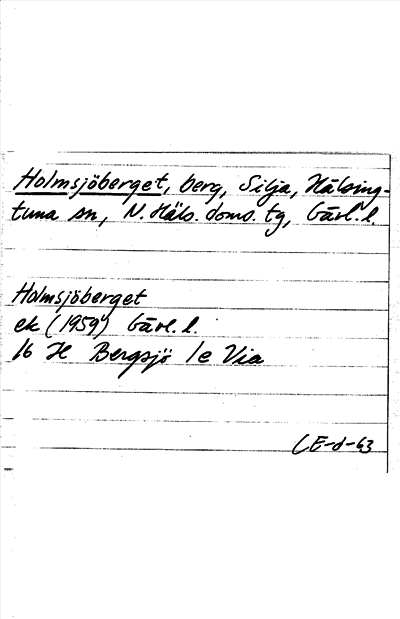 Holmsjöberget, berg, Silja, Hälsing-
tuna sn, N. Häls. doms. tg, Gävl. l.
Holmsjöberget
ek (1959) Gävl. l.
16 H Bergsjö 1e Via
CE-d-63